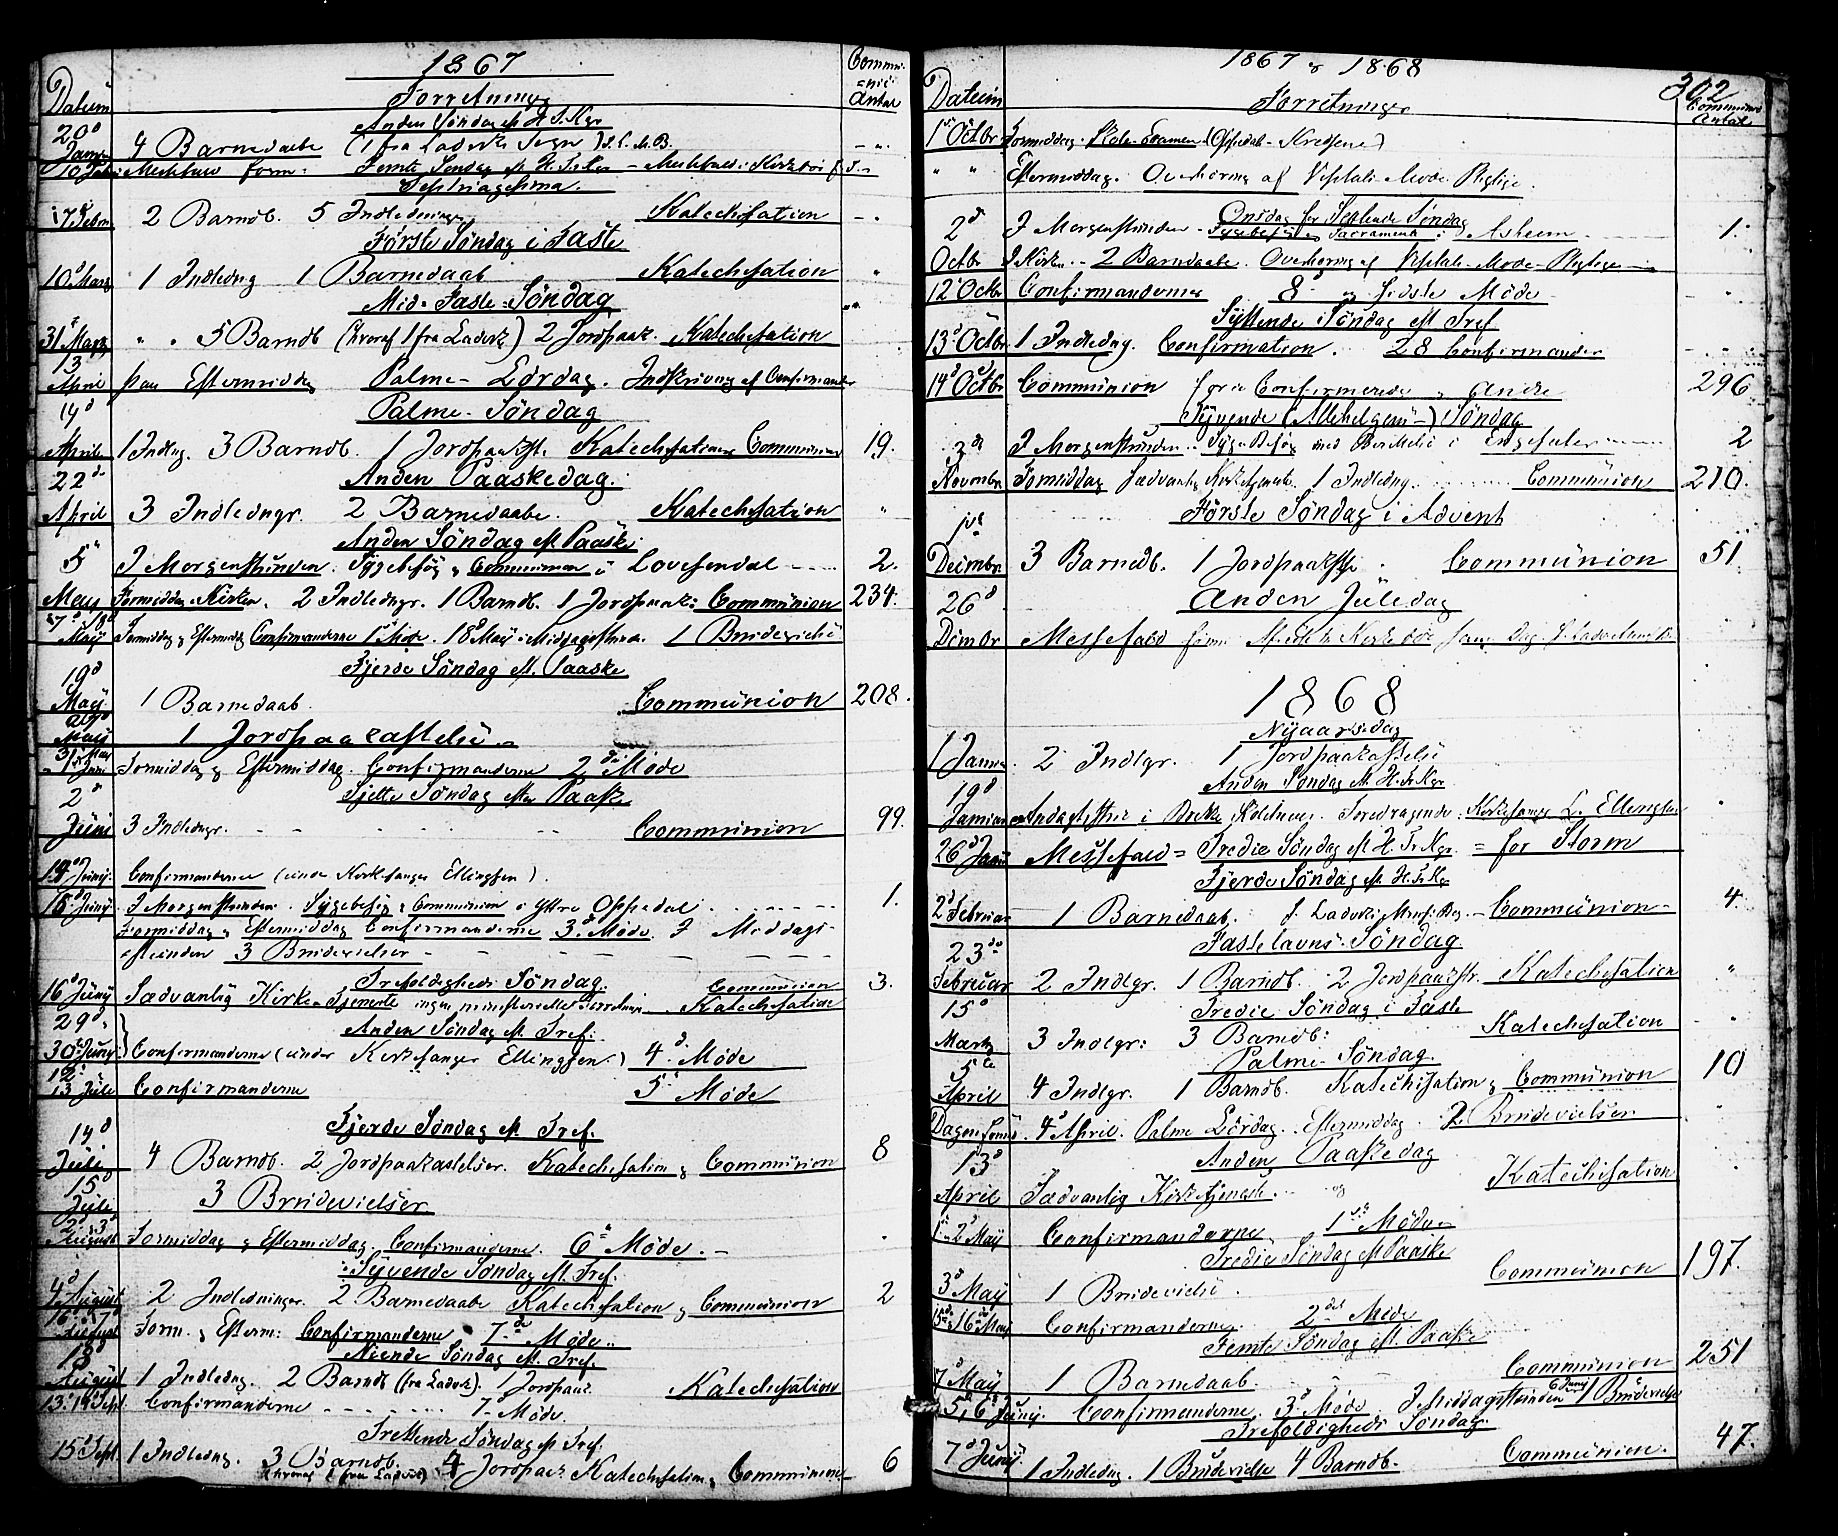 1867
Datum
Forretninger
Communic
Antal
Anden Søndag eft H. 3. Kgr
20d Janr
4 Barnedaabe (1 fra Ladviks Sogn)
10 Febr. Messefald form: Femte Søndag eft H. 3. Kgr
Septuagesima.
17 Febr 2 Barndb. 5 Indledninger Katechisation
Første Søndag i Faste
10d Marts 1 Indledng 1 Barnedaab Katechisation
Mid-Faste-Søndag
31 Marts 5 Barndb (hvoraf 1 fra Ladvik) 2 Jordpaak. Katechisation
13 April paa Eftermiddag Palme-Lørdag. Indskrivng af Confirmander
14d Palme-Søndag
April 1 Indlng 3 Barndb. 1 Jordpaakst. Katechisation Communion 19.
22d Anden Paaskedag.
April 3 Indledngr. 2 Barnedaabe. Katechisation
Anden Søndag eft Paaske
5 I Morgenstunden. Sygebesøg & Communion i Lovesendal 2.
May Formiddag i Kirken. 2 Indledngr. 1 Barndb. 1 Jordpaak: Communion 234.
17d 18d May Formiddag & Eftermiddag Confirmanderne 1st Møde. 18d May i Middagsstunden 1 Brudevielse
Fjerde Søndag eft. Paaske
19d
May 1 Barnedaab. Communion 208.
29d May 1 Jordpaakastelse
31 May 1 Juni Formiddag & Eftermiddag. Confirmanderne 2det Møde
2d Sjette Søndag efter Paaske
Juni 3 Indledngr. Communion 99.
14d Junij. Confirmanderne (under Kirkesanger Ellingsen).
15d Junij. I Morgenstunden. Sygebesøg & Communion i Yttre Oppedal. 1.
Formiddag & Eftermiddag Confirmanderne 3d Møde. I Middags-
stunden 3 Brudevielser
Trefoldigheds Søndag. Communion 3.
16d Junij Sædvanlig Kirke-Tjeneste ingen ministerielle Forretninger Katechisation
29d Anden Søndag eft. Tref:
30d Junij Confirmanderne (under Kirkesanger Ellingsen.) 4d Møde
12 13 Juli Confirmanderne 5d Møde
Fjerde Søndag eft Tref.
14d
Juli 4 Barndb. 2 Jordpaakastelser. Katechisation & Communion 8
15d Juli 3 Brudevielser
2d 3d August Formiddag & Eftermiddag Confirmanderne. 6d Møde.
Syvende Søndag eft. Tref.
4d August 2 Indledninger 2 Barnedaabe Katechisation & Communion 2
16d 17d August Form. & Efterm: Confirmanderne 7de Møde
Niende Søndag eft. Tref
18d August 1 Indledng. 2 Barndb (fra Ladvik). 1 Jordpaak. Katechisation
13. 14d Sept. Confirmanderne 7. Møde.
Trettende Søndag eft Tref.
15d Sept. 1 Indledng. 3 Barndb. (hvoraf 1 fra Ladvik) 4 Jordpaak. Katechisation & Communion 6
1867 & 1868
302
Datum
Forretninger
Communic
Antal
1ste Octbr Formiddag. Skole-Examen (Oppedals-Kredsene)
" " Eftermiddag. Overhøring af Vestale-Møde-Pligtige.
Onsdag før Sextende Søndag
2d I Morgenstunden - Sygebesøg Sacramente i Asheim 1.
Octbr I Kirken. - 2 Barndaabe. Overhøring af Møde-Pligtige
12 Octbr Confirmanderne 8 og sidste Møde
Syttende Søndag eft Tref
13d Octbr 1 Indledng. Confirmation. 28 Confirmander
14d Octbr Communion for Confirmerede & Andre 296
Tyvende (Allehelgens-) Søndag
3d I Morgenstunden. Syge-Besøg med Berettelse i Engesæter 2
Novmbr Formiddag Sædvanlig Kirketjeneste 1 Indledng. Communion 210.
1st Første Søndag i Advent
Decmbr 3 Barndb. 1 Jordpaakst. Communion 51
26d Anden Juledag
Dcmbr Messefald
1868
Nyaarsdag
1 Januar 2 Indlgr. 1 Jordpaakastelse
Anden Søndag eft. H. Tr. Kgr
19d
Januar Andagtsstund i Brekke Skolehuus. Foredragende. Kirkesanger L. Ellingsen
26d Janr Messefald = Tredie Søndag eft H. Tr. Kgr. = for Storm
Fjerde Søndag eft H. Tr. Kgr
2d Februar 1 Barnedaab. Communion 4.
23de Fastelavns-Søndag
Februar 2 Indlgr. 1 Barndb. 2 Jordpaakstr. Katechisation
15d Tredie Søndag i Faste
Marts 3 Indlgr: 3 Barndb: Katechisation
Palme-Søndag.
5te April 4 Indlgr. 1 Barndb. Katechisation & Communion 10
Dagen forud. 4d April. Palme Lørdag. Eftermiddag. 2 Brudevielser
13d Anden Paaskedag
April Sædvanlig Kirketjeneste og Katechisation
1-2d May Confirmanderne 1ste Møde
Tredie Søndag eft Paaske
3d May 1 Brudevielse Communion 197.
15de 16de May Confirmanderne. 2det Møde
Femte Søndag eft. Paaske
17d May 1 Barnedaab. Communion 251
5, 6 Junij. Confirmanderne. 3d Møde. I Middagsstunden 6 Junij 1 Brudevielse
Trefoldigheds Søndag.
7d Junij 1 Indledng. 1 Brudevielse 4 Barndb. Communion. 47.